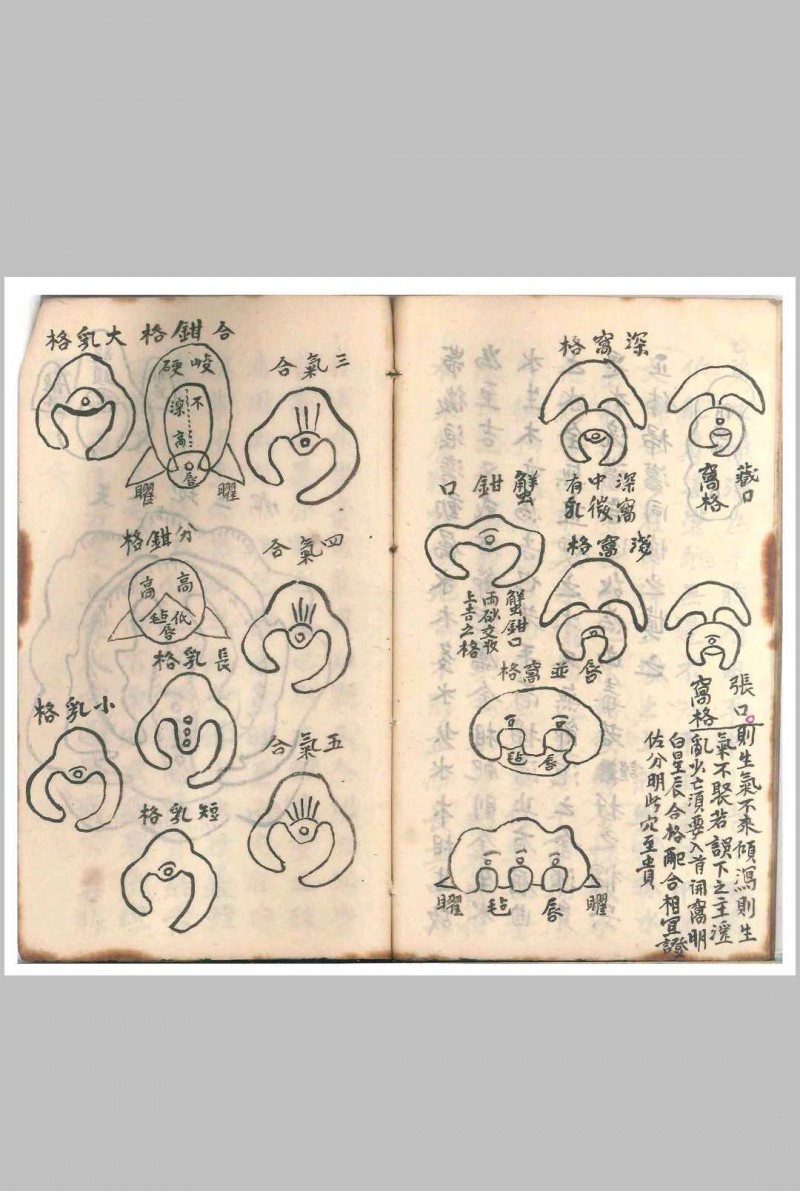 藏口
窩格
深窩格
深窩
中微
有乳
淺窩格
張口
窩格
則生氣不來傾瀉則生
氣不聚若誤下之主淫
亂少亡須要入首開窩明
白星辰合格配合相宜證
佐分明此穴至貴
蟹鉗口
蟹鉗口
兩砂交牧
上吉之格
唇並窩格
毡唇
曜毡唇曜
三氣合
四氣合
五氣合
合鉗格
峻硬
不
深
高
唇
曜曜
分鉗格
高高
低
毡
唇
長乳格
短乳格
大乳格
小乳格